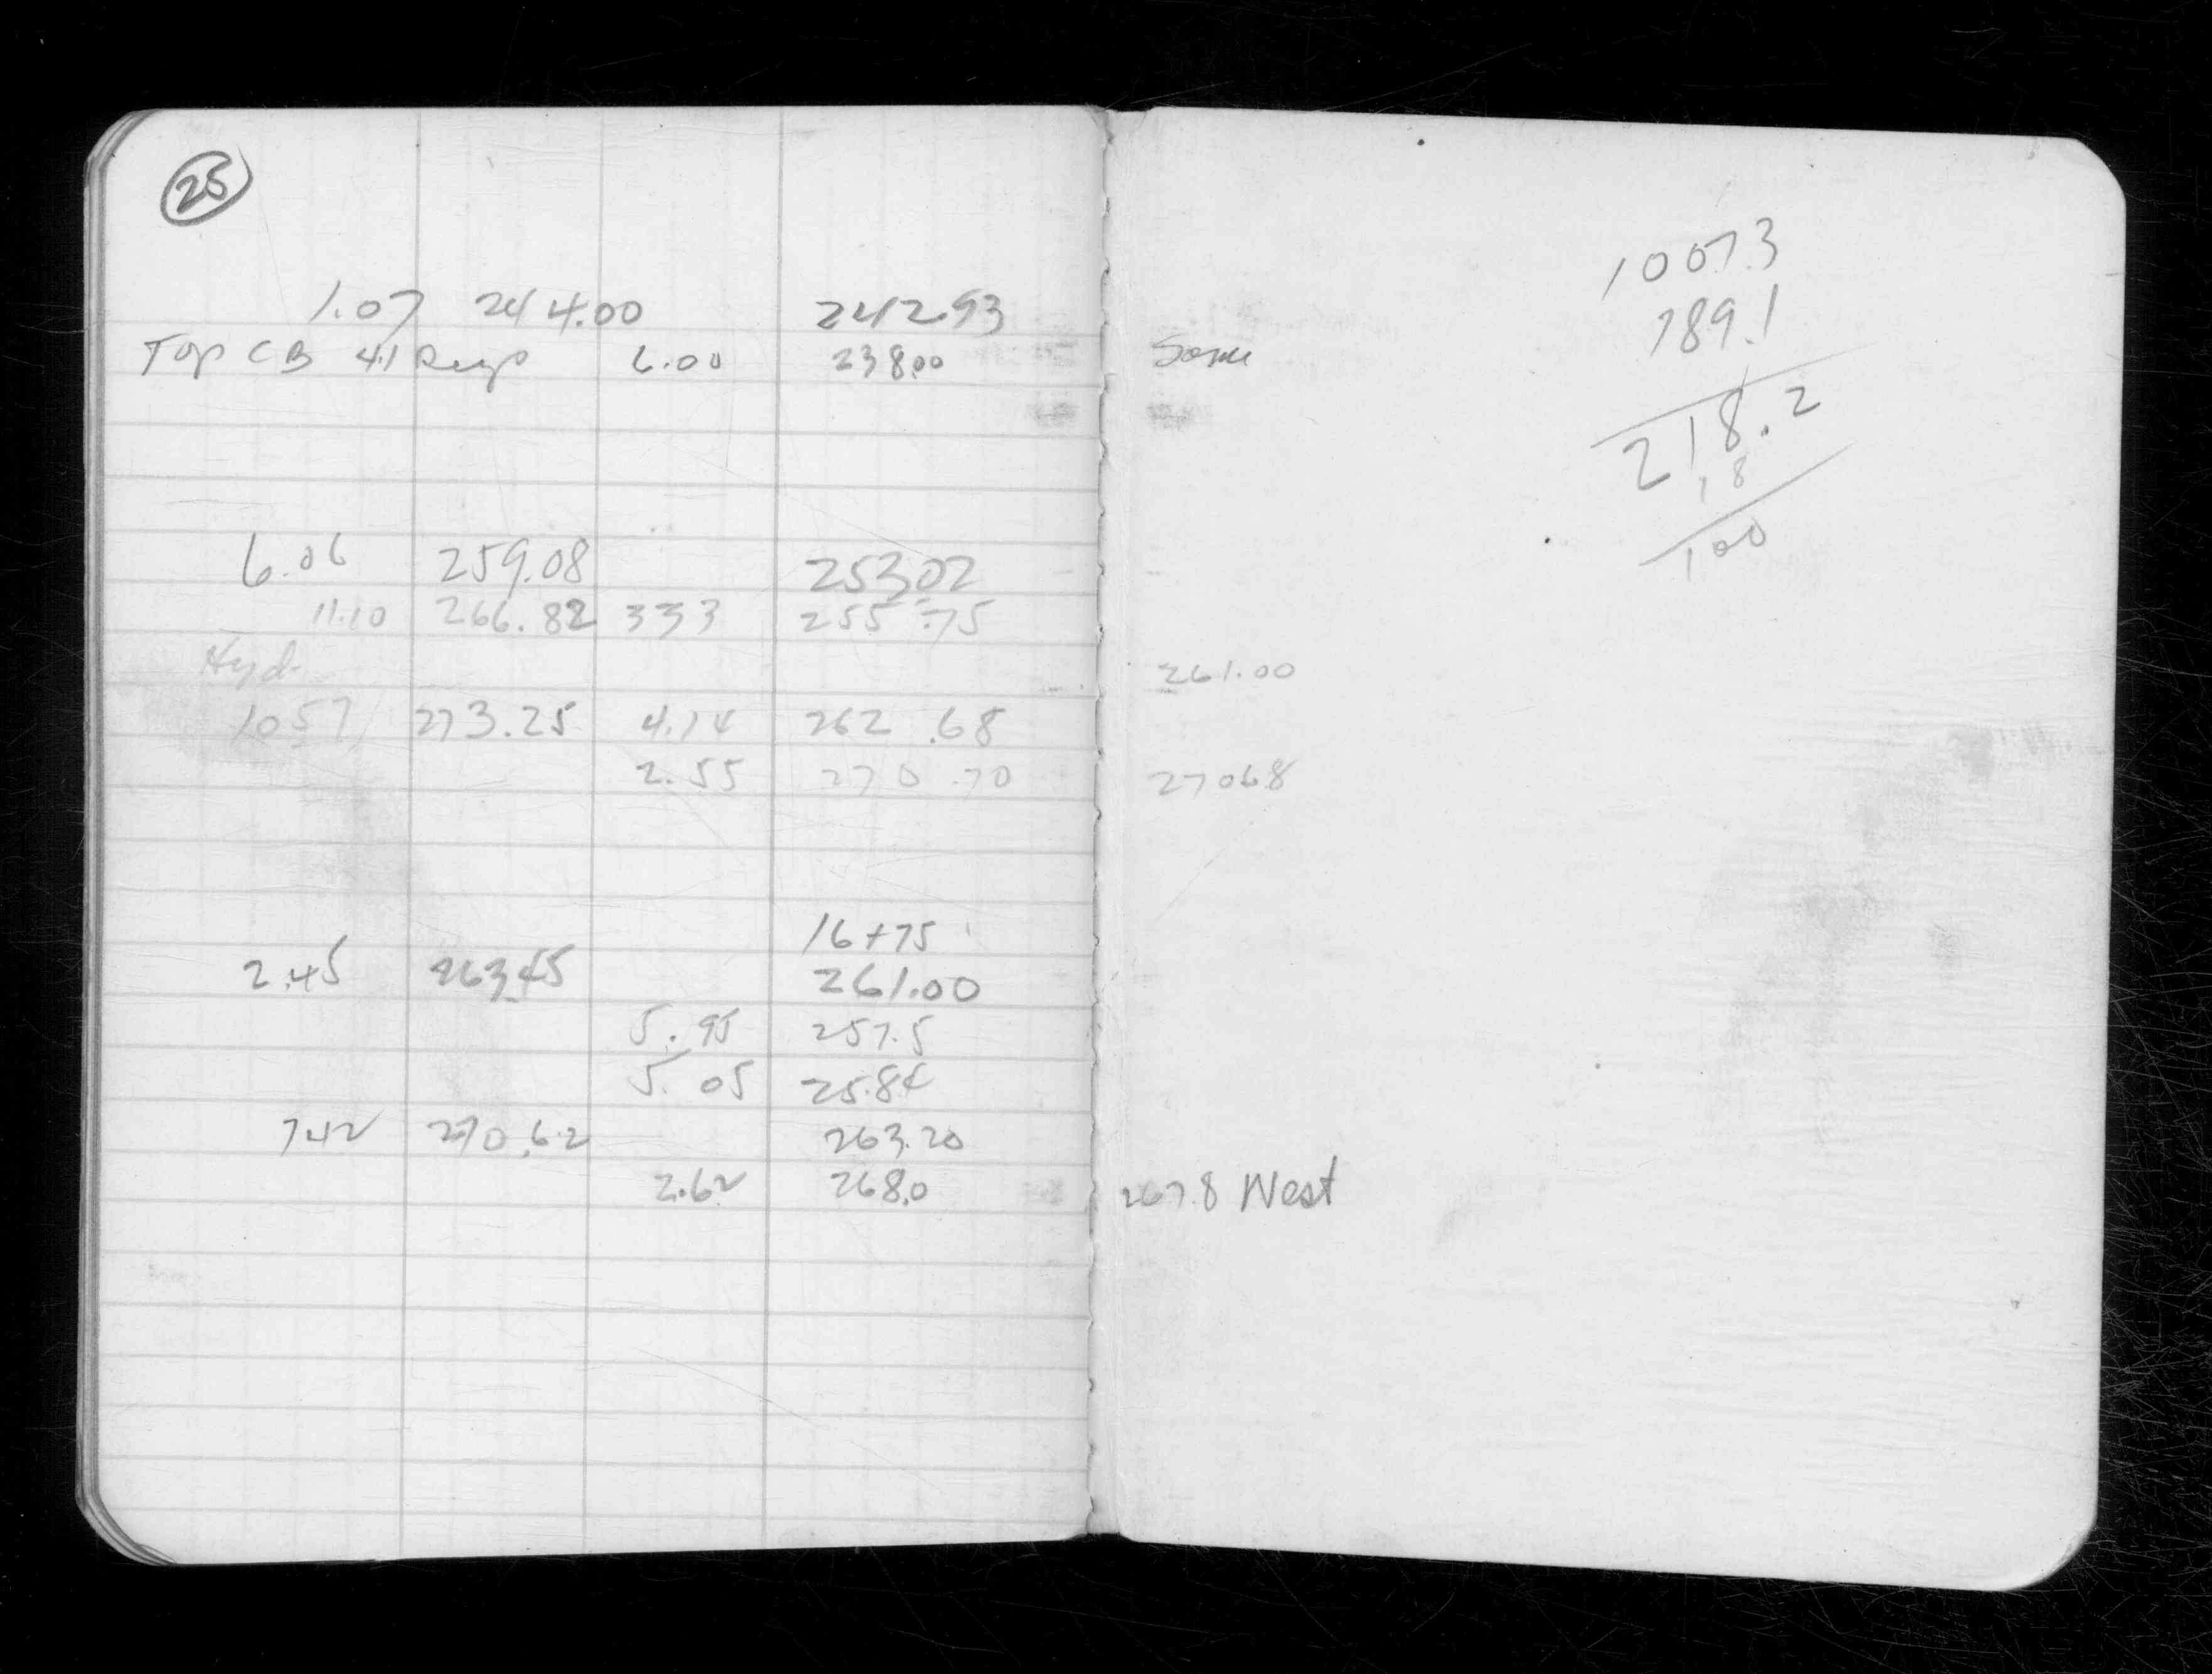 25
1.07 244.00 242.93
Top CB 41 6.00 238.00 Same
6.06 259.08 253.02
11.10 266.82 333 255.75
Hyd. 261.00
10.57 273.25 4.14 262.68
2.55 270.70 270.68
16+75
2.45 263.45 261.00
5.95 257.5
5.05 258.4
7.42 270.62 263.20
2.62 268.0 267.8 West
1007.3
789.1
218.2
18
100